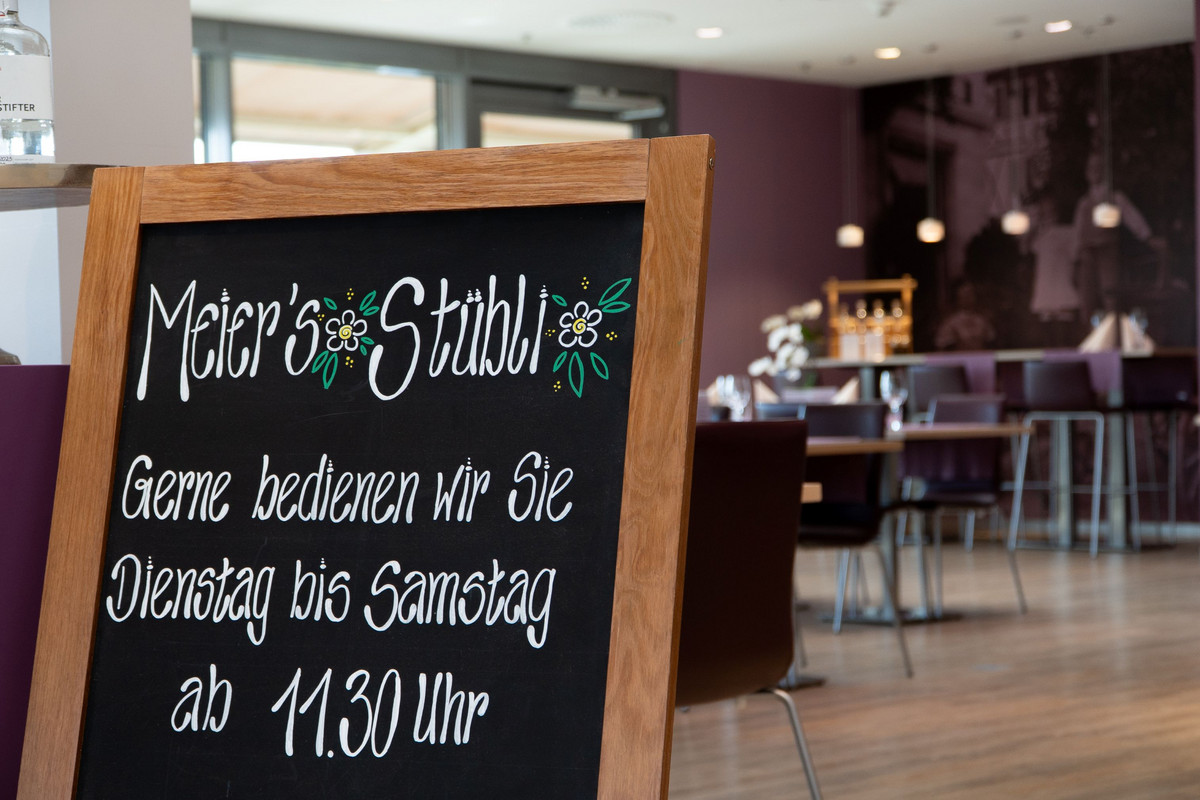 STIFTER
Meier's Stübli
Gerne bedienen wir Sie
Dienstag bis Samstag
ab 11.30 Uhr